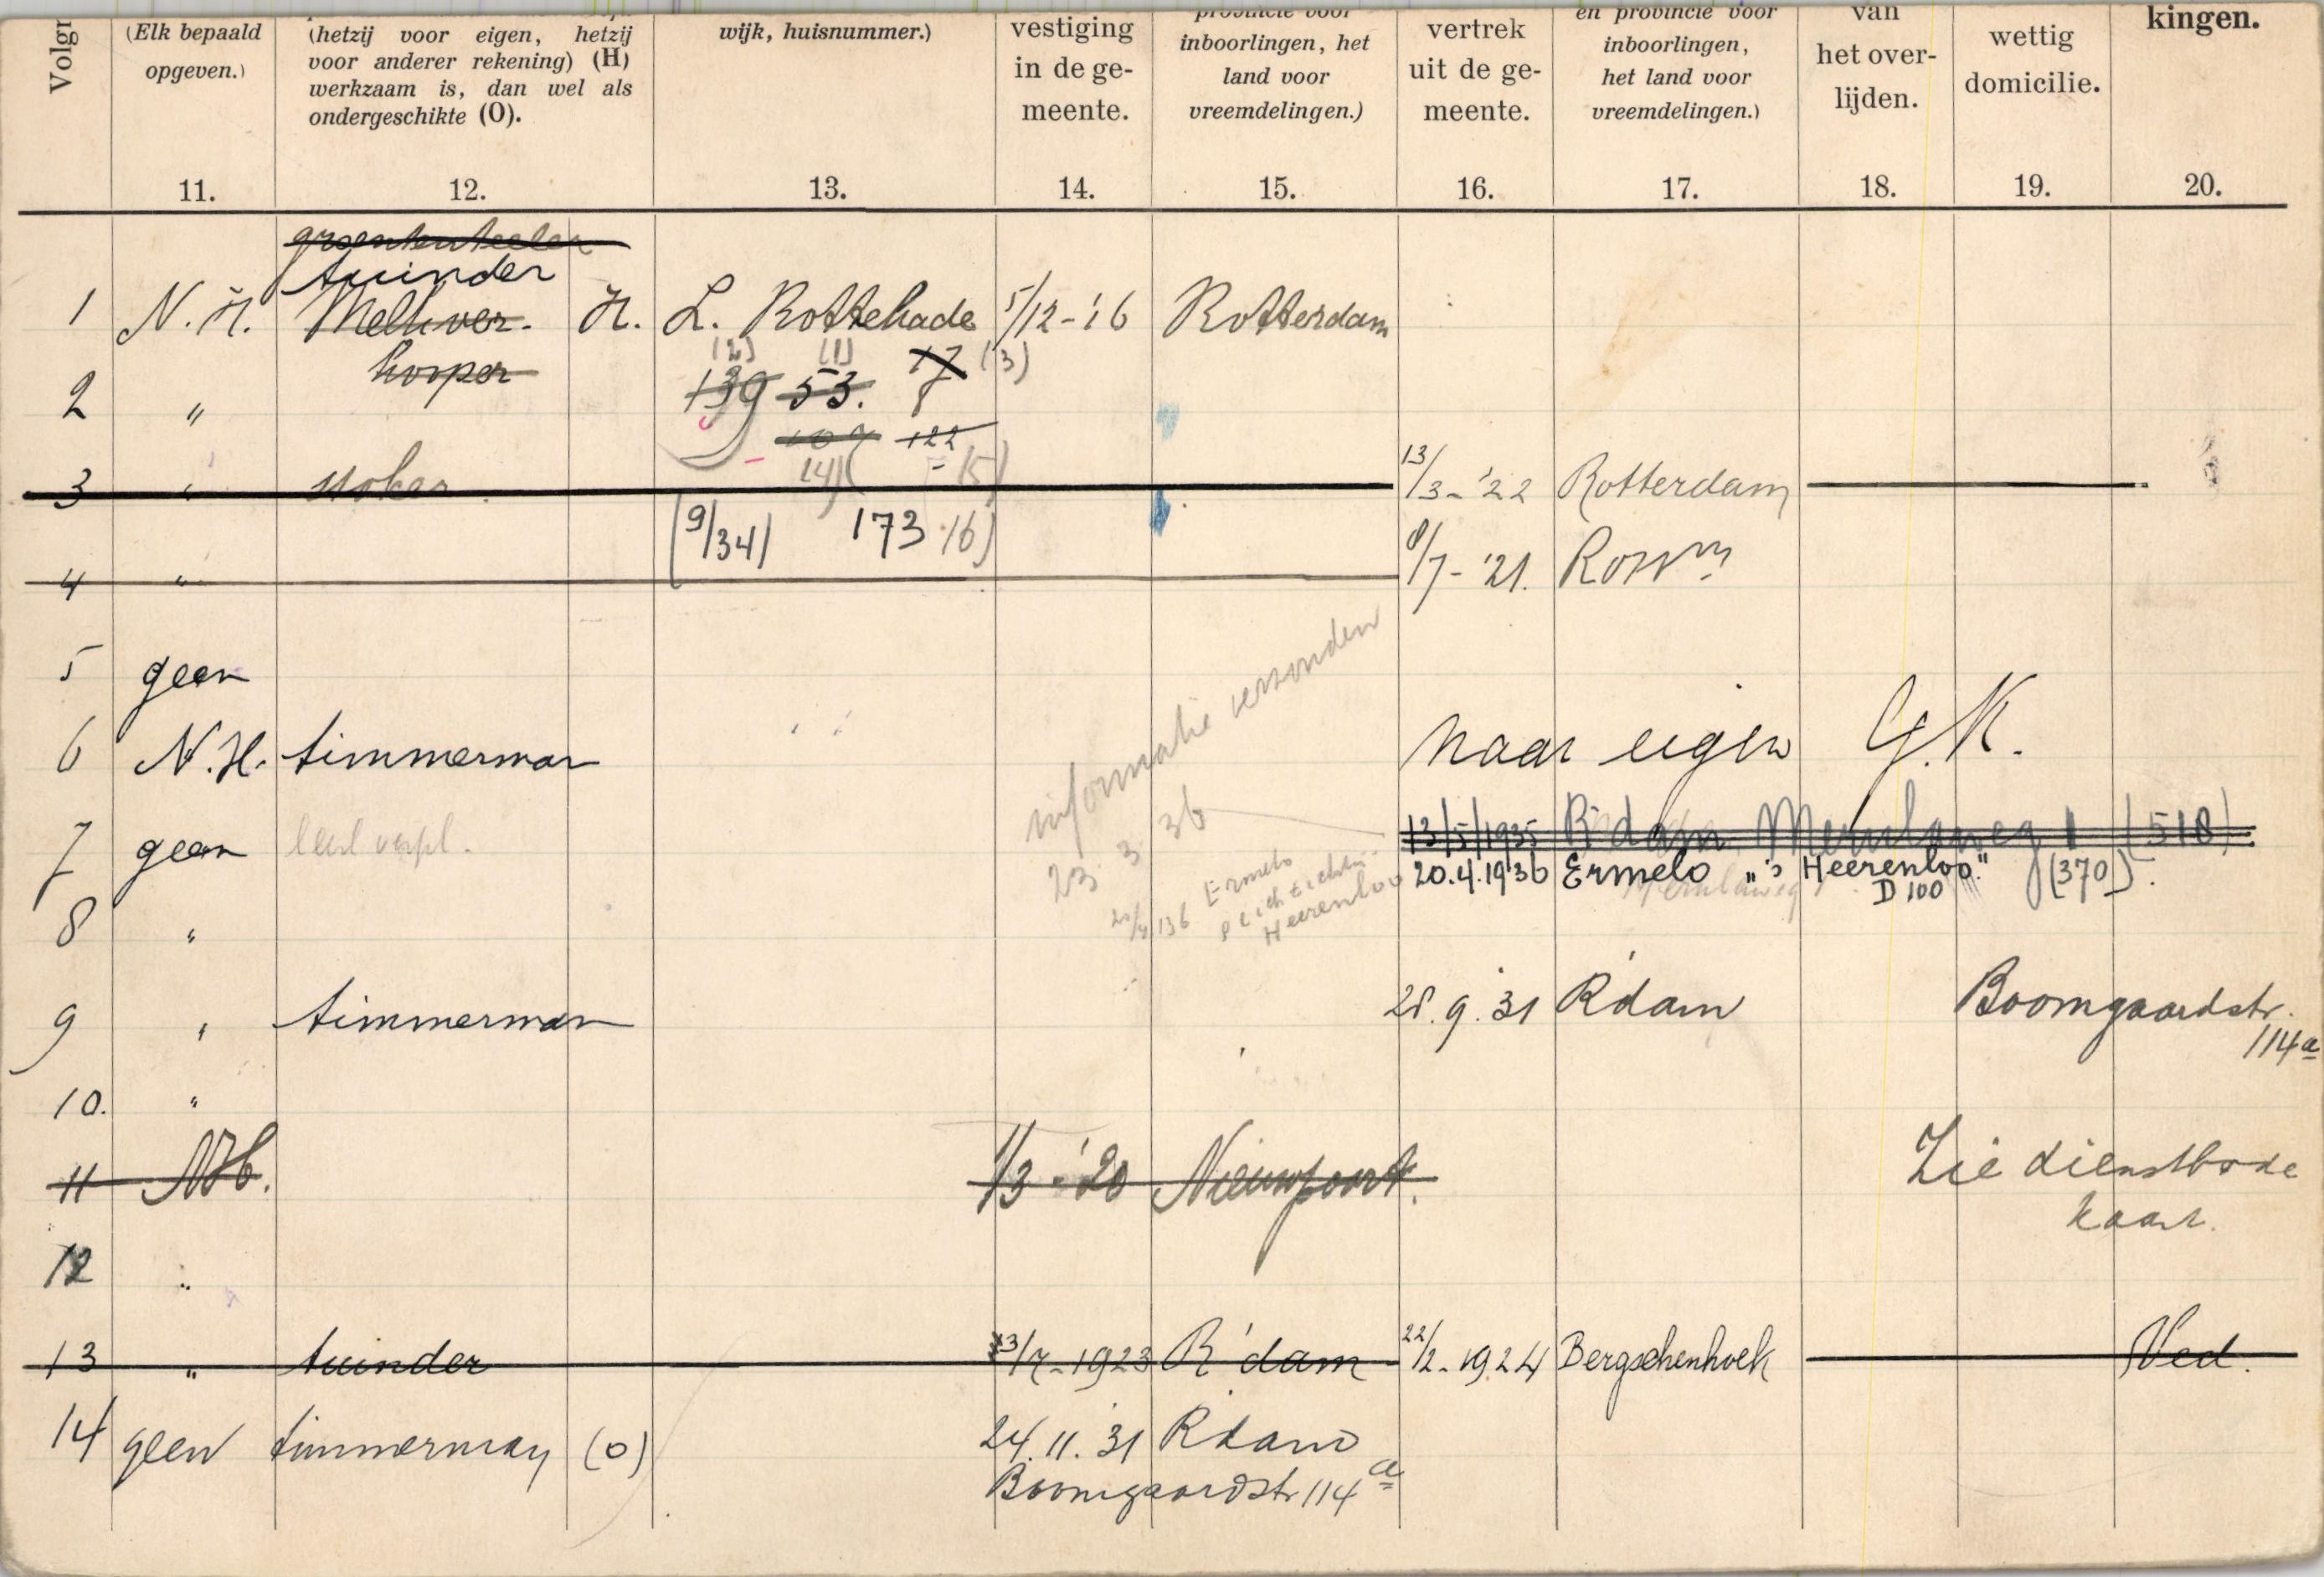 Volgr
(Elk bepaald
opgeven.)
11.
(hetzij voor eigen, hetzij
voor anderer rekening) (H)
werkzaam is, dan wel als
ondergeschikte (O).
12.
wijk, huisnummer.)
13.
vestiging
in de ge-
meente.
14.
provincie voor
inboorlingen, het
land voor
vreemdelingen.)
15.
vertrek
uit de ge-
meente.
16.
en provincie voor
inboorlingen,
het land voor
vreemdelingen.)
17.
van
het over-
lijden.
18.
wettig
domicilie.
19.
kingen.
20.
groententeeler
tuinder
1 N. H. Melkver- H. L. Rottekade 5/12-'16 Rotterdam
kooper
(2) (1) 17 (3)
139 53. 8
2 "
109 122
(4) (5)
3 " stoker 13/3-'22 Rotterdam
(9/34) 173 (6)
4 " 8/7-'21. Rott^m
5 geen
informatie verzonden
23 3 36
6 N.H. timmerman naar eigen G.K.
7 geen 13/5/1935 R'dam (518)
20.4.1936 Ermelo "'s Heerenloo" (370)
D 100
Ermelo
Heerenloo
8 "
9 " timmerman 28.9.31 R'dam Boomgaardstr.
114a
10. "
11 NH. 1/3-'20 Nieuwpoort. Zie dienstbode
kaart.
12 "
13 " tuinder 13/7-1923 R'dam 22/2-1924 Bergschenhoek Ved.
14 geen timmerman (O) 24.11.31 R'dam
Boomgaardstr 114a